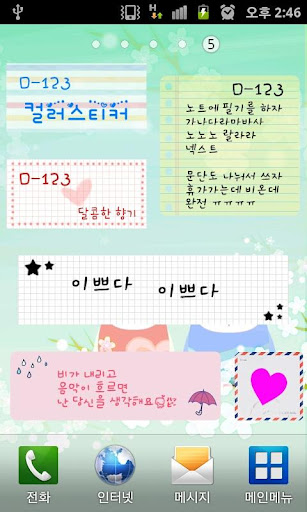 오후 2:46
5
D-123
컬러스티커
D-123
노트에 필기를 하자
가나다라마바사
노노노 랄라라
넥스트
문단도 나눠서 쓰자
휴가가는데 비온데
완전 ㅠㅠㅠㅠ
D-123
달콤한 향기
이쁘다
이쁘다
비가 내리고
음악이 흐르면
난 당신을 생각해요
전화
인터넷
메시지
메인메뉴